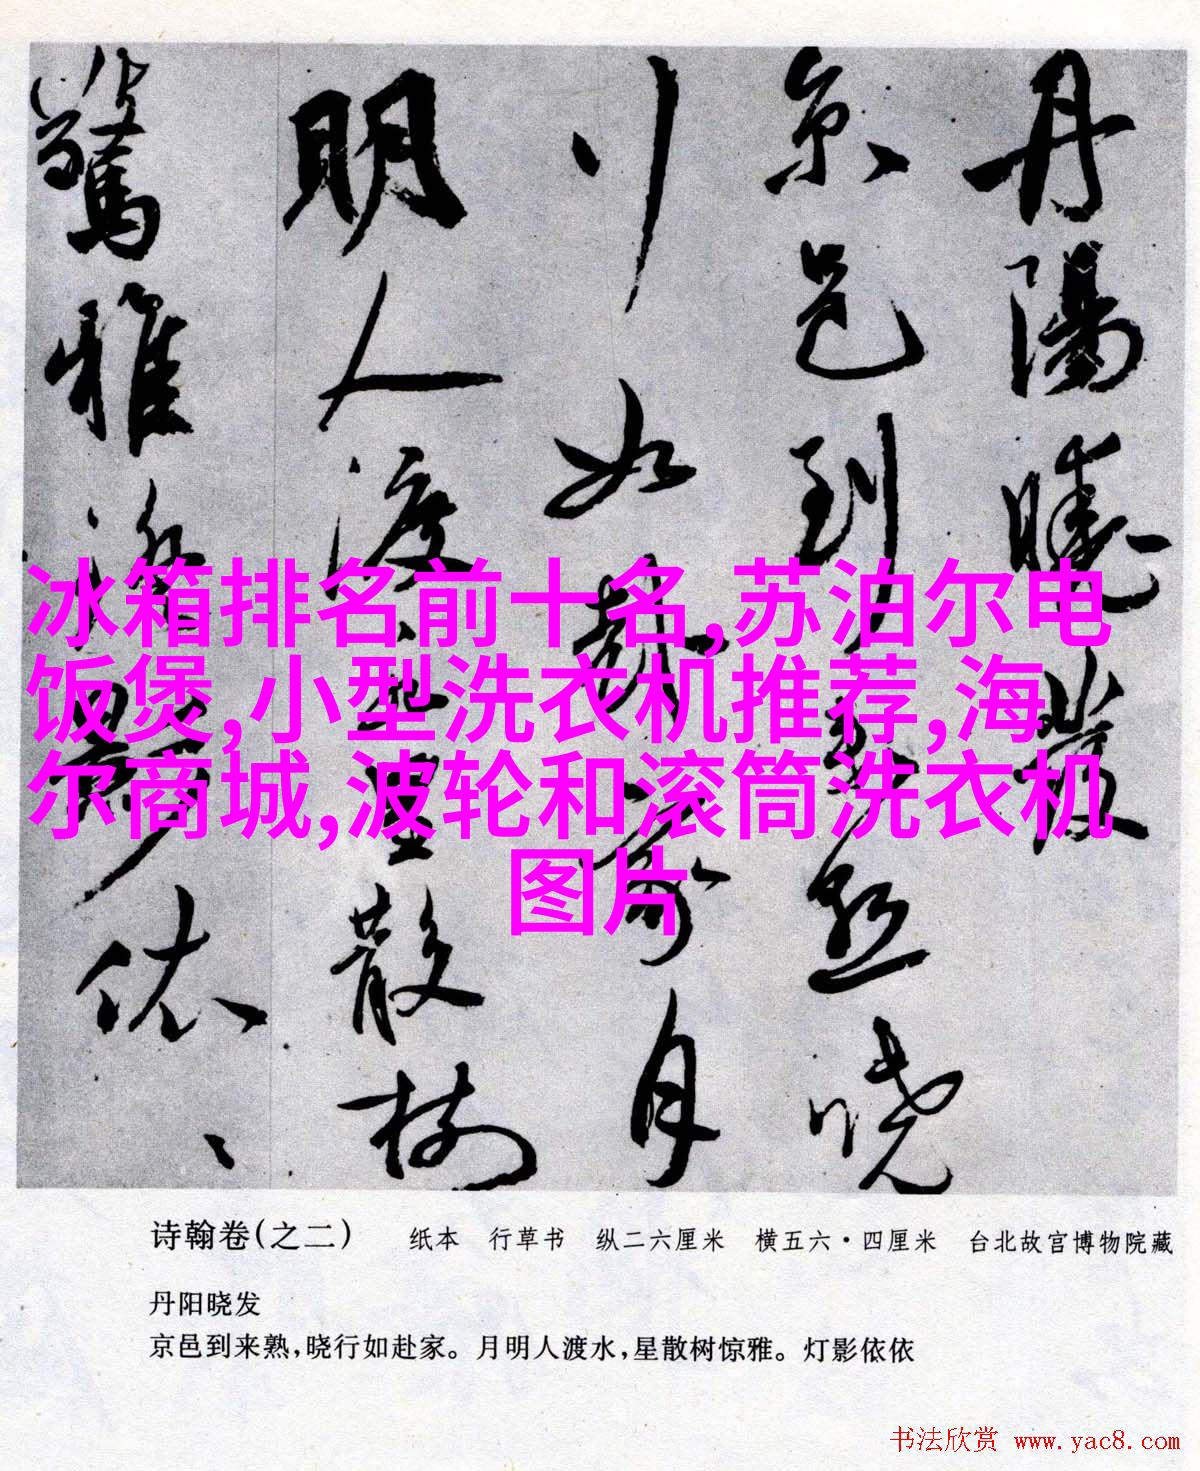 丹陽曉發
京邑到来熟曉
行如赴家月
明人渡水星散樹
驚雅灯影依依
冰箱排名前十名,苏泊尔电
饭煲,小型洗衣机推荐,海
尔商城,波轮和滚筒洗衣机
图片
诗翰卷(之二) 纸本 行草书 纵二六厘米 横五六·四厘米 台北故宫博物院藏
丹阳晓发
京邑到来熟,晓行如赴家。月明人渡水,星散树惊雅。灯影依依
书法欣赏 www.yac8.com